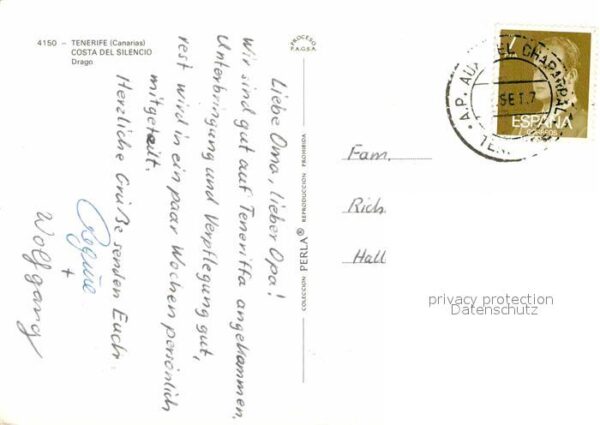 4150 - TENERIFE (Canarias)
COSTA DEL SILENCIO
Drago
PROCESO
F.A.G.S.A.
Liebe Oma, lieber Opa!
Wir sind gut auf Teneriffa angekommen,
Unterbringung und Verpflegung gut,
rest wird in ein paar Wochen persönlich
mitgeteilt.
Herzliche Grüße senden Euch
Regine
+
Wolfgang
COLECCION PERLA® REPRODUCCION PROHIBIDA
7
PTA
ESPAÑA
CORREOS
A.P. AUX. EL CHAPARRAL
SE 1.7
Fam.
Rich
Hall
privacy protection
Datenschutz